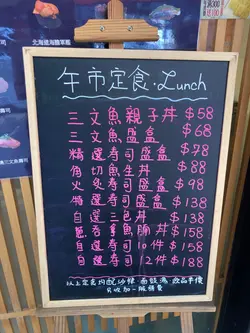 北海道海膽軍艦
午市定食·Lunch
三文魚親子丼 $58
三文魚盛盒 $68
精選壽司盛盒 $78
角切魚生丼 $88
火炙壽司盛盒 $98
特選壽司盛盒 $138
自選三色丼 $138
蔥吞拿魚腩丼 $158
自選壽司10件 $158
自選壽司12件 $188
以上定食均配沙律 麵豉湯
只收加一服務費